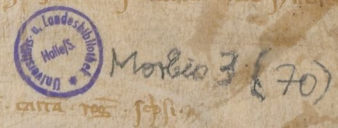 Universitäts- u. Landesbibliothek
Halle/S.
Morbio 3 (70)
carta